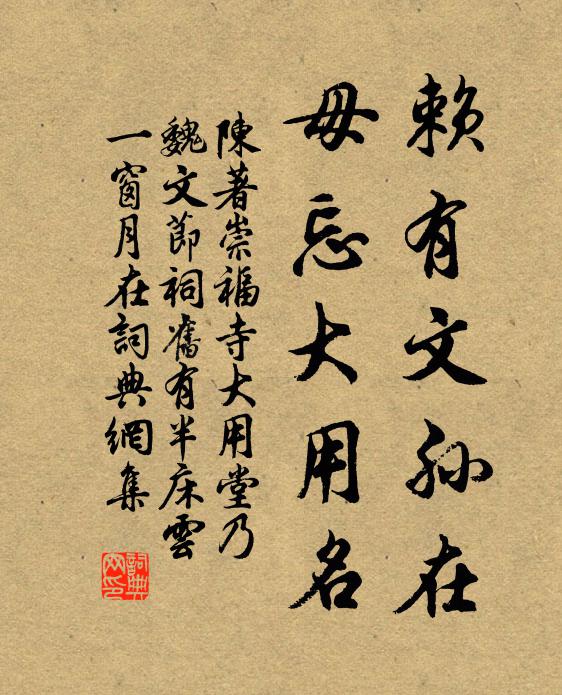 賴有文孙在
毋忘大用名
陳著崇福寺大用堂乃
魏文節祠舊有半床雲
一窗月在詞典網集
詞典
网印